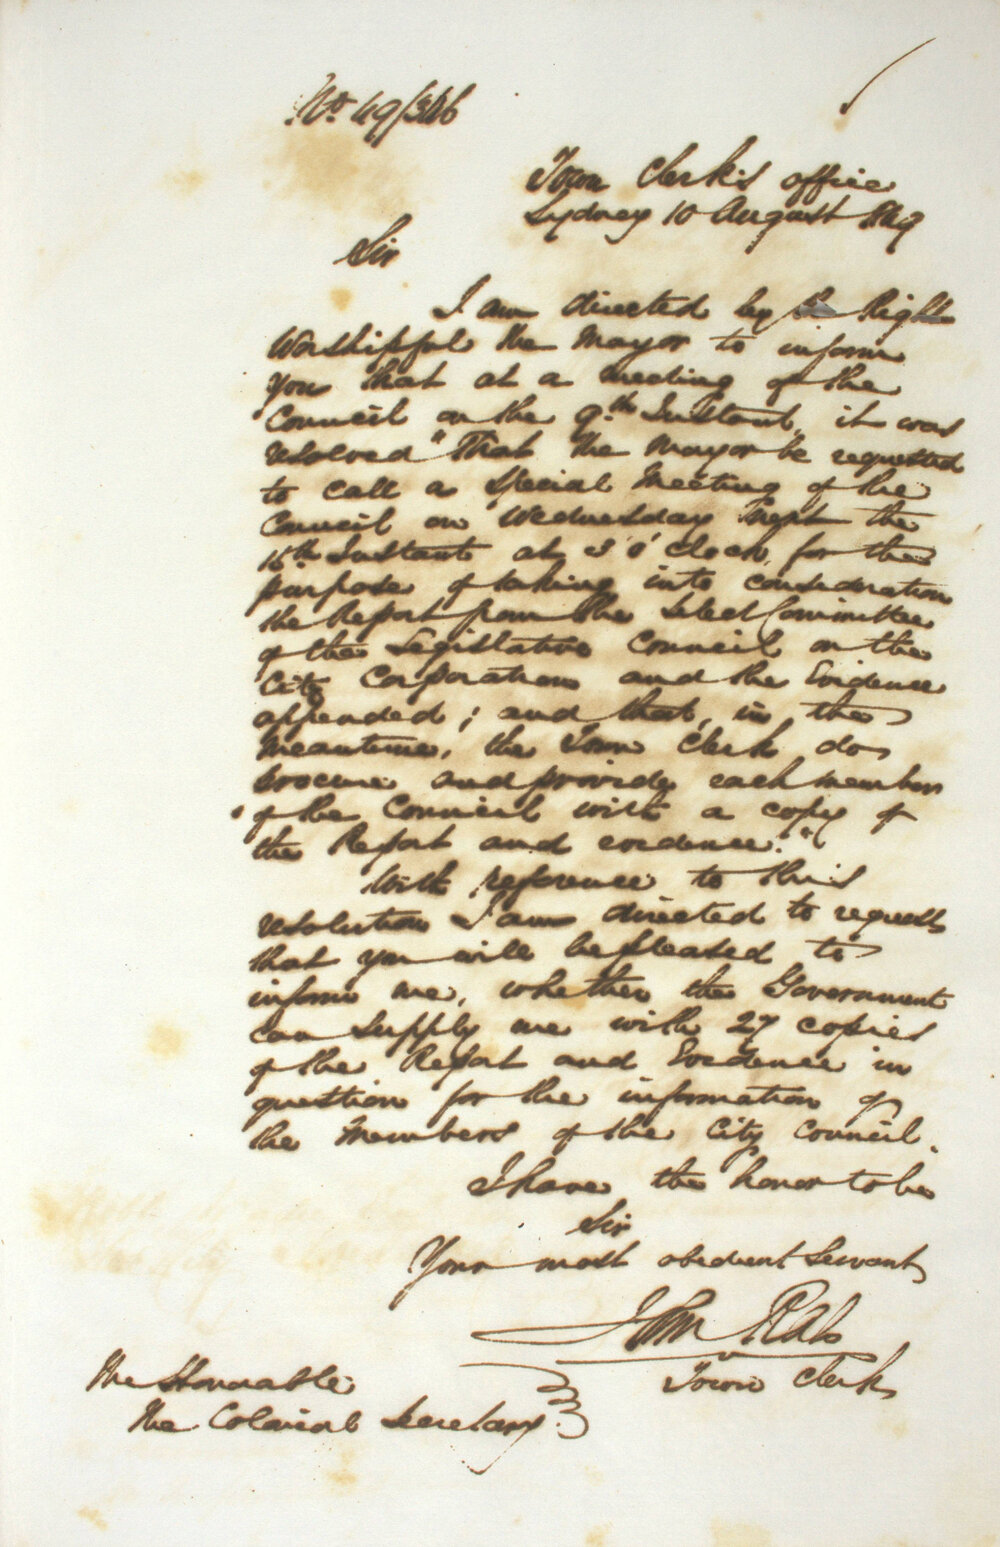 No. 49/346
Town Clerk's office
Sydney 10 August 1849
Sir
I am directed by the Right
Worshipful the Mayor to inform
You that at a meeting of the
Council on the 9th Instant, it was
resolved "That the Mayor be requested
to call a Special Meeting of the
Council on Wednesday next the
15th Instant at 3 o'clock, for the
purpose of taking into consideration
the Report from the Select Committee
of the Legislative Council on the
City Corporation and the Evidence
appended; and that, in the
meantime, the Town Clerk do
procure and provide each member
of the Council with a copy of
the Report and evidence."
With reference to this
resolution I am directed to request
that you will be pleased to
inform me, whether the Government
can supply me with 27 copies
of the Report and Evidence in
question for the information of
the Members of the City Council.
I have the honor to be
Sir
Your most obedient Servant
John
Town Clerk
The Honorable
The Colonial Secretary